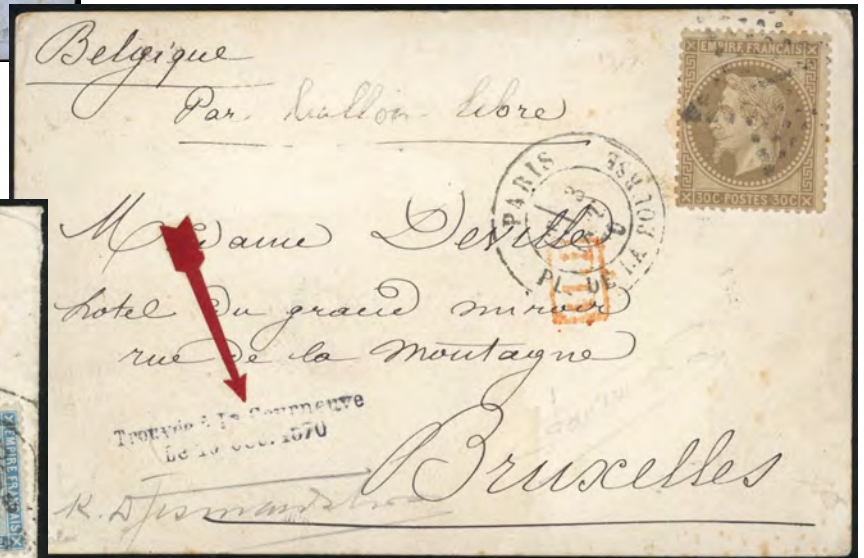 Belgique
Par ballon libre
EMPIRE FRANÇAIS
30C POSTES 30C
PARIS
PL. DE LA BOURSE
Madame Deville
hotel du grand miroir
rue de la Montagne
Bruxelles
Trouvée à la Courneuve
Le 1870
EMPIRE FRANÇAIS